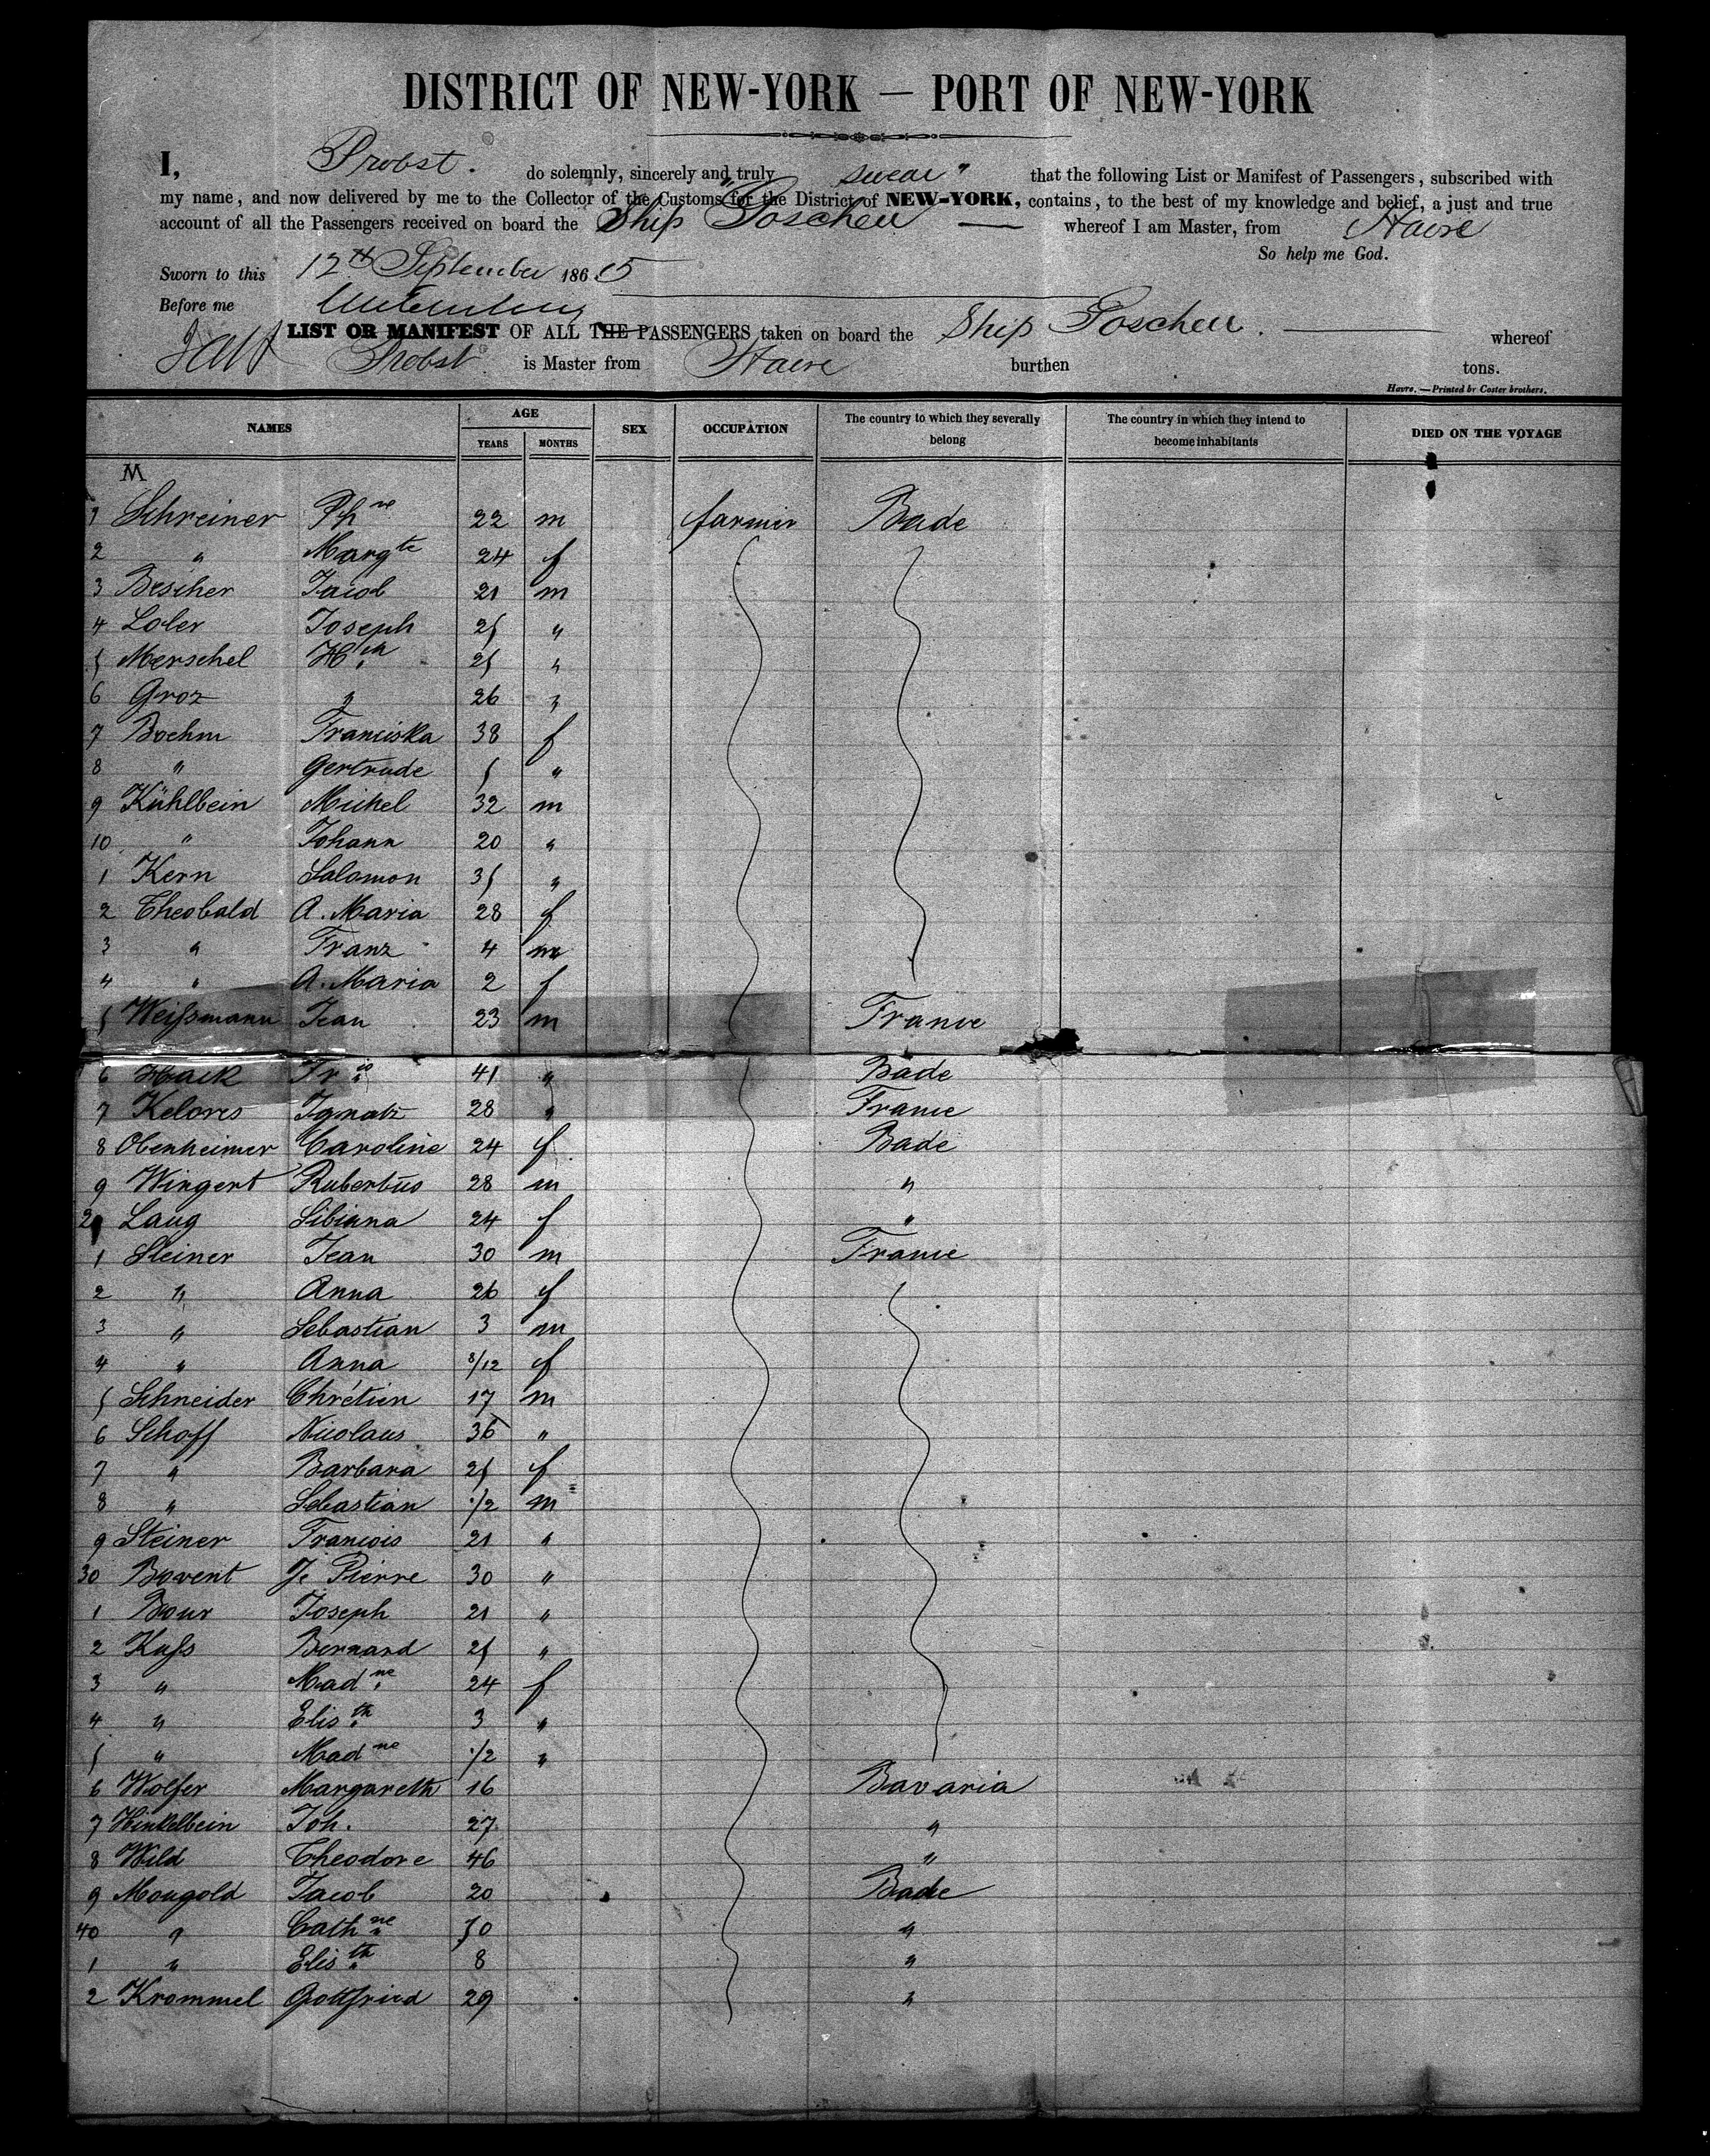 DISTRICT OF NEW-YORK — PORT OF NEW-YORK
I, Probst. do solemnly, sincerely and truly swear" that the following List or Manifest of Passengers, subscribed with
my name, and now delivered by me to the Collector of the Customs for the District of NEW-YORK, contains, to the best of my knowledge and belief, a just and true
account of all the Passengers received on board the Ship "Goschen — whereof I am Master, from Havre
So help me God.
Sworn to this 12th September 1865
Before me
LIST OR MANIFEST OF ALL THE PASSENGERS taken on board the Ship Goschen. — whereof
Probst is Master from Havre burthen tons.
Havre. — Printed br Coster brothers.
NAMES AGE YEARS MONTHS SEX OCCUPATION The country to which they severally belong The country in which they intend to become inhabitants DIED ON THE VOYAGE
M
1 Schreiner Phne 22 m farmer Bade
2 " Margte 24 f
3 Bescher Jacob 21 m
4 Loler Joseph 25 "
5 Merschel Hch 25 "
6 Groz " 26 "
7 Boehm Franciska 38 f
8 " Gertrude 5 "
9 Kühlbein Michel 32 m
10 " Johann 20 "
1 Kern Salomon 35 "
2 Theobald A. Maria 28 f
3 " Franz 4 m
4 " A. Maria 2 f
5 Weißmann Jean 23 m France
6 Hack Frco 41 " Bade
7 Kelores Ignatz 28 " France
8 Obenheimer Caroline 24 f Bade
9 Wingert Rubertus 28 m "
20 Laug Sibiana 24 f "
1 Steiner Jean 30 m France
2 " Anna 26 f
3 " Sebastian 3 m
4 " Anna 8/12 f
5 Schneider Chrétien 17 m
6 Schoff Nicolaus 36 "
7 " Barbara 25 f
8 " Sebastian 1/2 m
9 Steiner Francois 21 "
30 Bovent Je Pierre 30 "
1 Bour Joseph 21 "
2 Kuß Bernard 25 "
3 " Madne 24 f
4 " Elisth 3 "
5 " Madne 1/2 "
6 Wolfer Margareth 16 Bavaria
7 Hinkelbein Joh. 27 "
8 Wild Theodore 46 "
9 Mougold Jacob 20 Bade
40 " Cathne 50 "
1 " Elisth 8 "
2 Krommel Gottfried 29 "